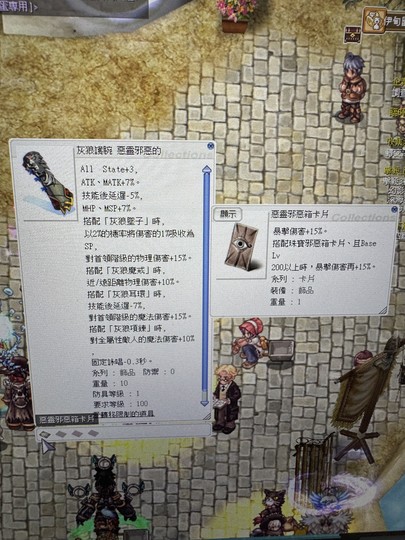 蛋專用]>
灰狼護腕 惡靈邪惡的
All State+3,
ATK、MATK+7%。
技能後延遲-5%,
MHP、MSP+7%。
搭配「灰狼墜子」時,
以2%的機率將傷害的1%吸收為
SP,
對首領階級的物理傷害+15%。
搭配「灰狼魔戒」時,
近/遠距離物理傷害+10%。
搭配「灰狼耳環」時,
技能後延遲-7%,
對首領階級的魔法傷害+15%。
搭配「灰狼項鍊」時,
對全屬性敵人的魔法傷害+10%
,
固定詠唱-0.3秒。
系列 : 飾品 防禦 : 0
重量 : 10
防具等級 : 1
要求等級 : 100
惡靈邪惡箱卡片
顯示
惡靈邪惡箱卡片
暴擊傷害+15%。
搭配珠寶邪惡箱卡片、且Base
Lv
200以上時,暴擊傷害再+15%。
系列 : 卡片
裝備 : 飾品
重量 : 1
Collections
Collections
伊甸